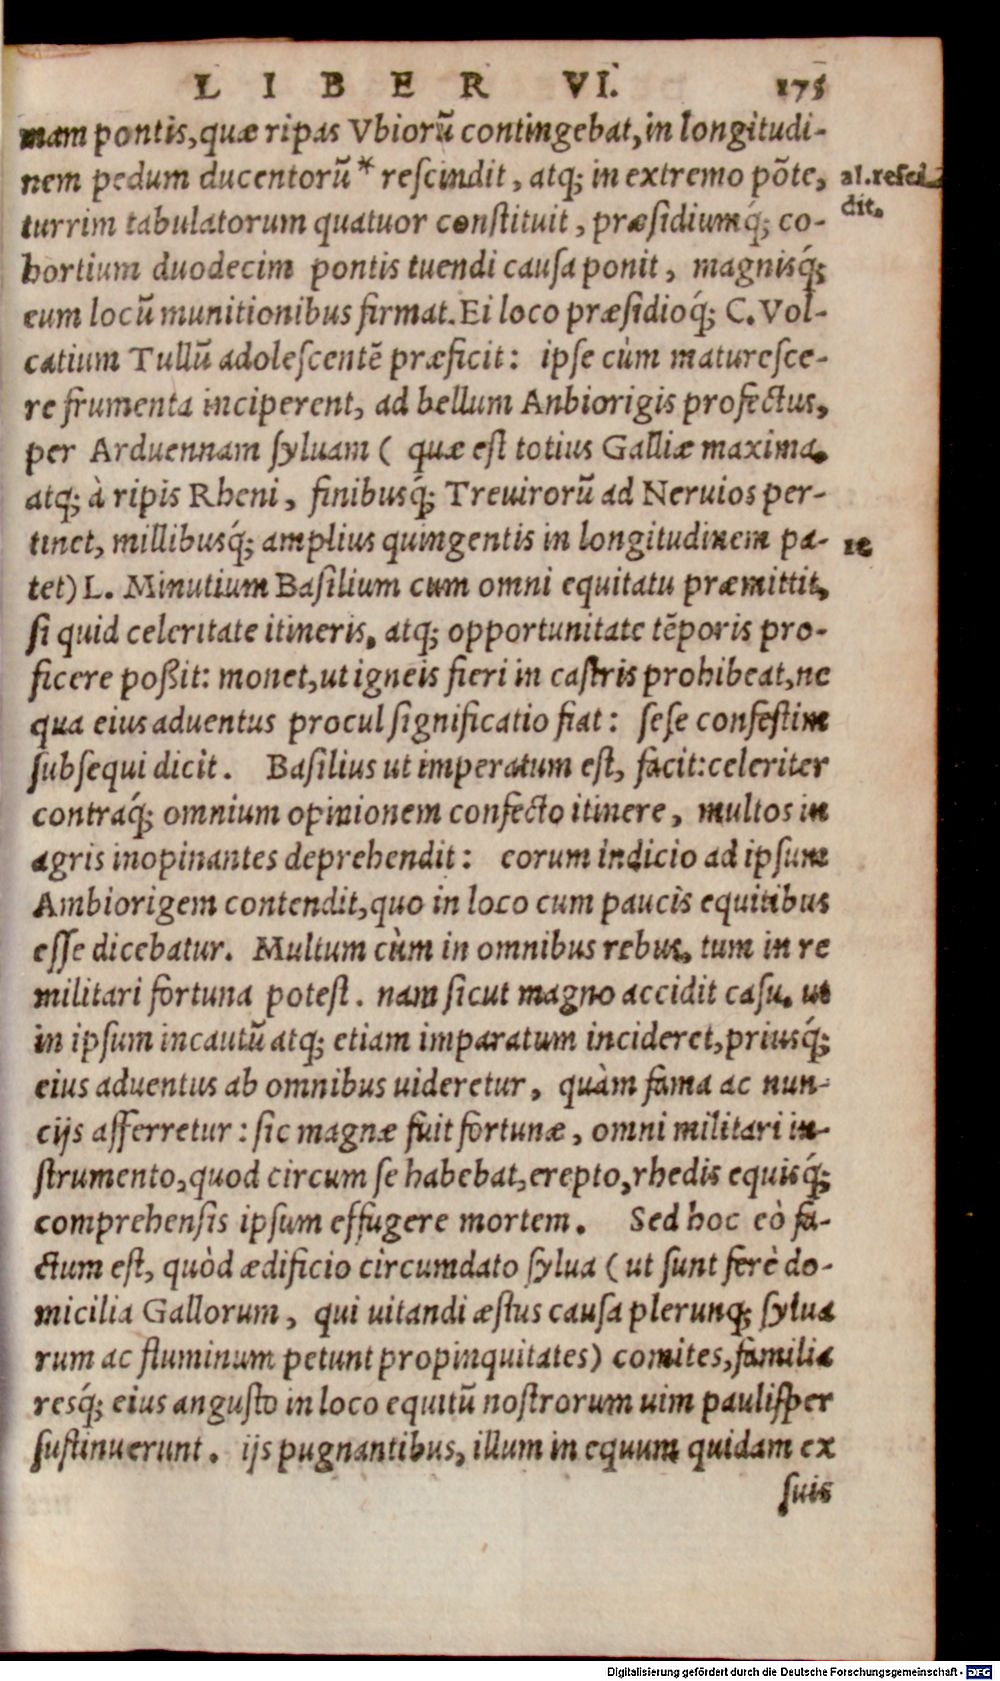 LIBER VI. 175
mam pontis, quæ ripas Vbiorũ contingebat, in longitudi-
nem pedum ducentorũ * rescindit, atq; in extremo põte,
al. resci-
dit.
turrim tabulatorum quatuor constituit, præsidiumq́; co-
hortium duodecim pontis tuendi causa ponit, magnisq́;
eum locũ munitionibus firmat. Ei loco præsidioq́; C. Vol-
catium Tullũ adolescentẽ præficit: ipse cùm maturesce-
re frumenta inciperent, ad bellum Anbiorigis profectus,
per Arduennam syluam ( quæ est totius Galliæ maxima.
atq; à ripis Rheni, finibusq́; Treuirorũ ad Neruios per-
tinet, millibusq́; amplius quingentis in longitudinem pa-
10
tet) L. Minutium Basilium cum omni equitatu præmittit,
si quid celeritate itineris, atq; opportunitate tẽporis pro-
ficere poßit: monet, ut igneis fieri in castris prohibeat, ne
qua eius aduentus procul significatio fiat: sese confestim
subsequi dicit. Basilius ut imperatum est, facit: celeriter
contraq́; omnium opinionem confecto itinere, multos in
agris inopinantes deprehendit: eorum indicio ad ipsum
Ambiorigem contendit, quo in loco cum paucis equitibus
esse dicebatur. Multum cùm in omnibus rebus, tum in re
militari fortuna potest. nam sicut magno accidit casu, ut
in ipsum incautũ atq; etiam imparatum incideret, priusq́;
eius aduentus ab omnibus uideretur, quàm fama ac nun-
cijs afferretur: sic magnæ fuit fortunæ, omni militari in-
strumento, quod circum se habebat, erepto, rhedis equisq́;
comprehensis ipsum effugere mortem. Sed hoc eò fa-
ctum est, quòd ædificio circumdato sylua ( ut sunt ferè do-
micilia Gallorum, qui uitandi æstus causa plerunq; sylua
rum ac fluminum petunt propinquitates) comites, familia
resq́; eius angusto in loco equitũ nostrorum uim paulisper
sustinuerunt. ijs pugnantibus, illum in equum quidam ex
suis
Digitalisierung gefördert durch die Deutsche Forschungsgemeinschaft - DFG